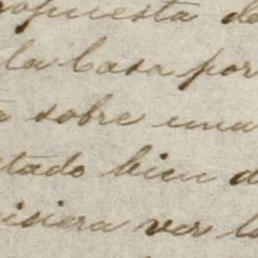 opuesta de
la Casa por
sobre una
tado bien d
isiera ver lo